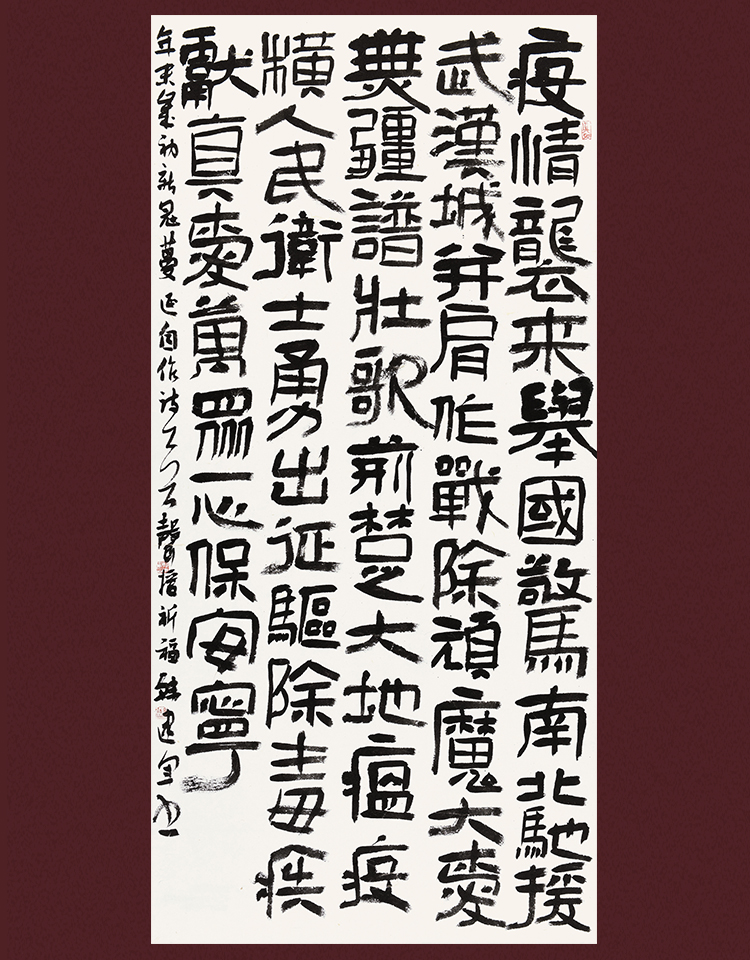 疫情襲来舉國驚南北馳援
武漢城并肩作戰除頑魔大愛
無疆譜壯歌荊楚大地瘟疫
橫人民衛士勇力出征驅除毒疾
獻真愛萬眾一心保安寧
年末歲初新冠蔓延自作詩
祈福